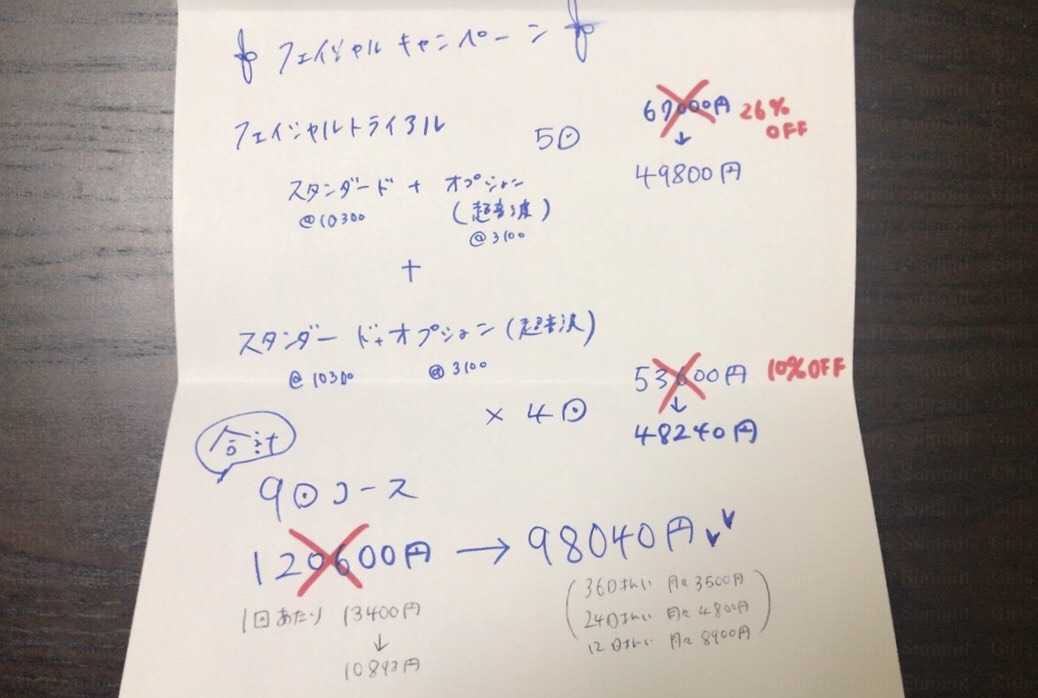 フェイシャルキャンペーン
フェイシャルトライアル 5回 67000円 26% OFF
↓
49800円
スタンダード + オプション
(超音波)
@10300 @3100
+
スタンダード+オプション(超音波)
@10300 @3100
53600円 10%OFF
↓
× 4回 48240円
合計
9回コース
120600円 → 98040円
1回あたり 13400円
↓
10893円
36回払い 月々3500円
24回払い 月々4800円
12回払い 月々8900円